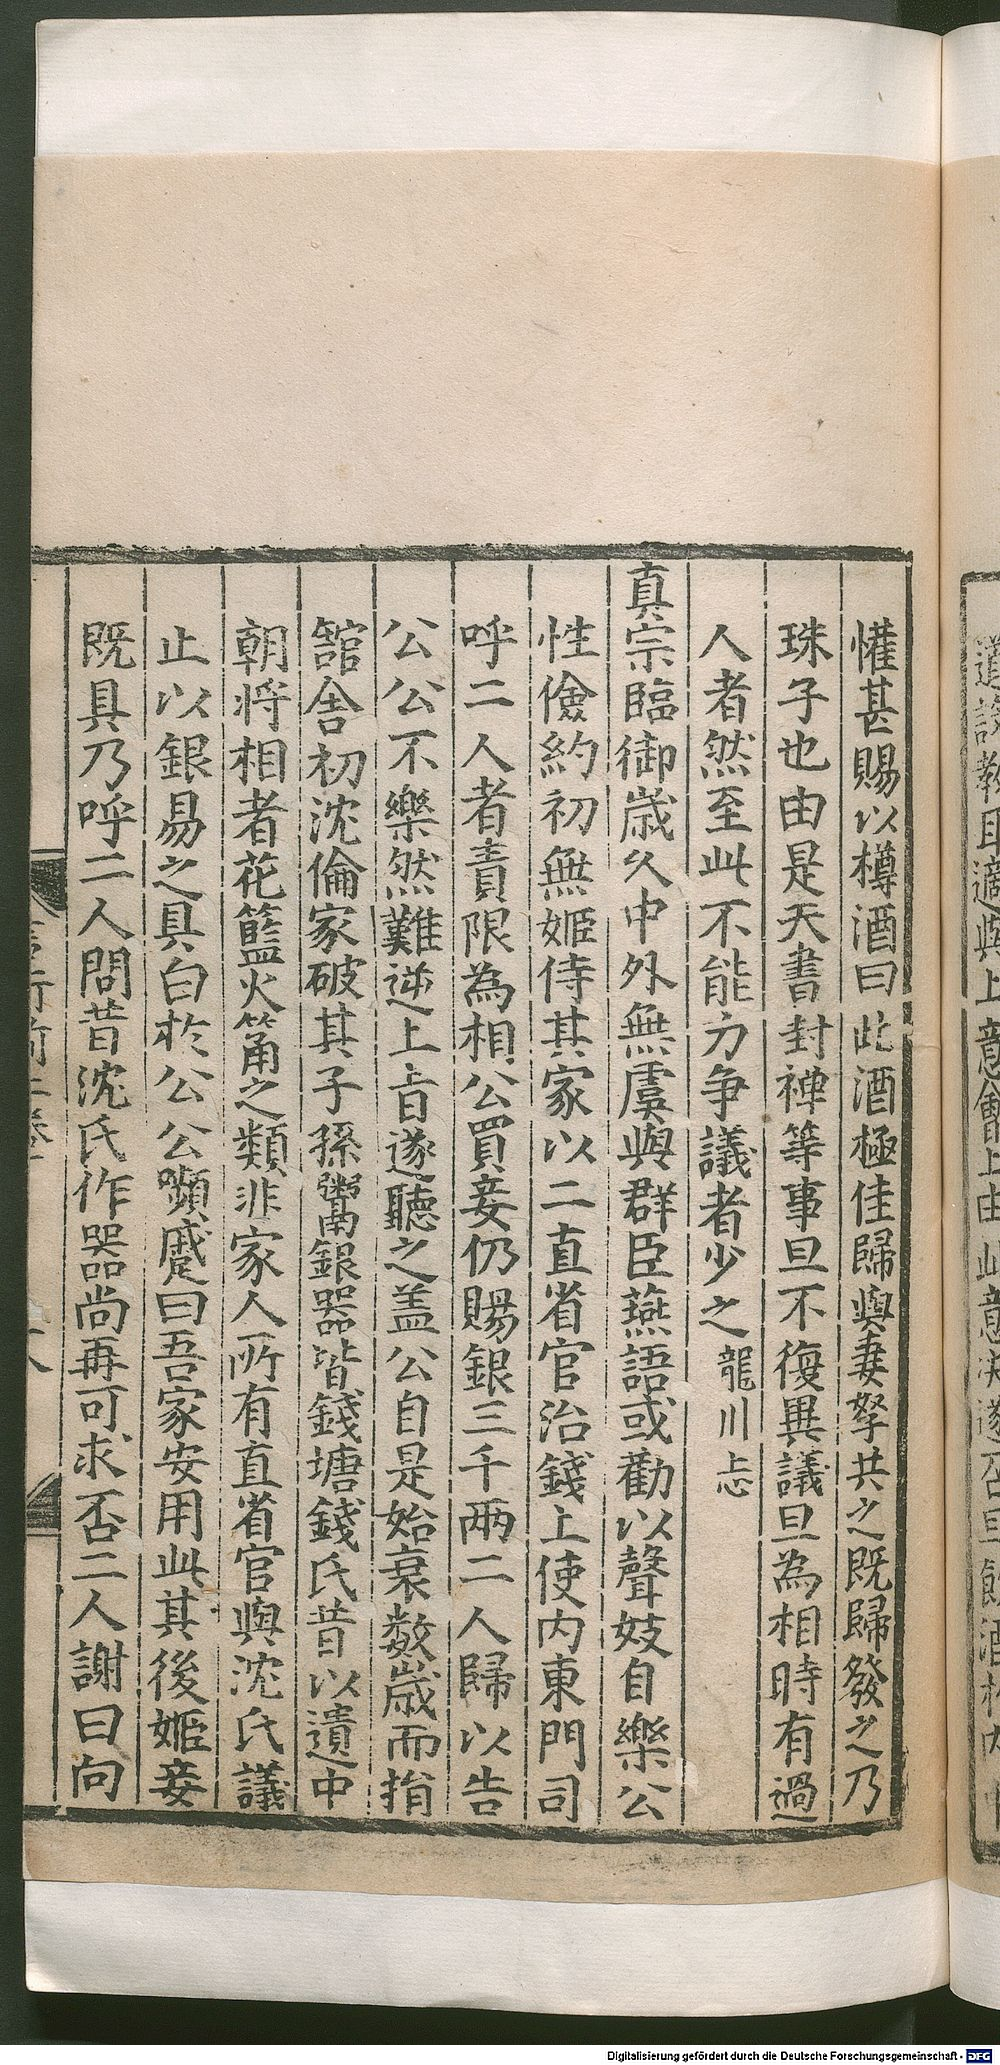 懽甚賜以樽酒曰此酒極佳歸與妻孥共之既歸發之乃
珠子也由是天書封禅等事旦不復異議旦為相時有過
人者然至此不能力争議者少之 龍川志
真宗臨御歲久中外無虞與群臣燕語或勸以聲妓自樂公
性儉約初無姬侍其家以二直省官治錢上使内東門司
呼二人者責限為相公買妾仍賜銀三千兩二人歸以告
公公不樂然難逆上旨遂聽之盖公自是始衰數歲而捐
舘舍初沈倫家破其子孫鬻銀器皆錢塘錢氏昔以遺中
朝将相者花籃火筩之類非家人所有直省官與沈氏議
止以銀易之具白於公公嚬蹙曰吾家安用此其後姬妾
既具乃呼二人問昔沈氏作器尚再可求否二人謝曰向
言行前二卷
十八
Digitalisierung gefördert durch die Deutsche Forschungsgemeinschaft - DFG